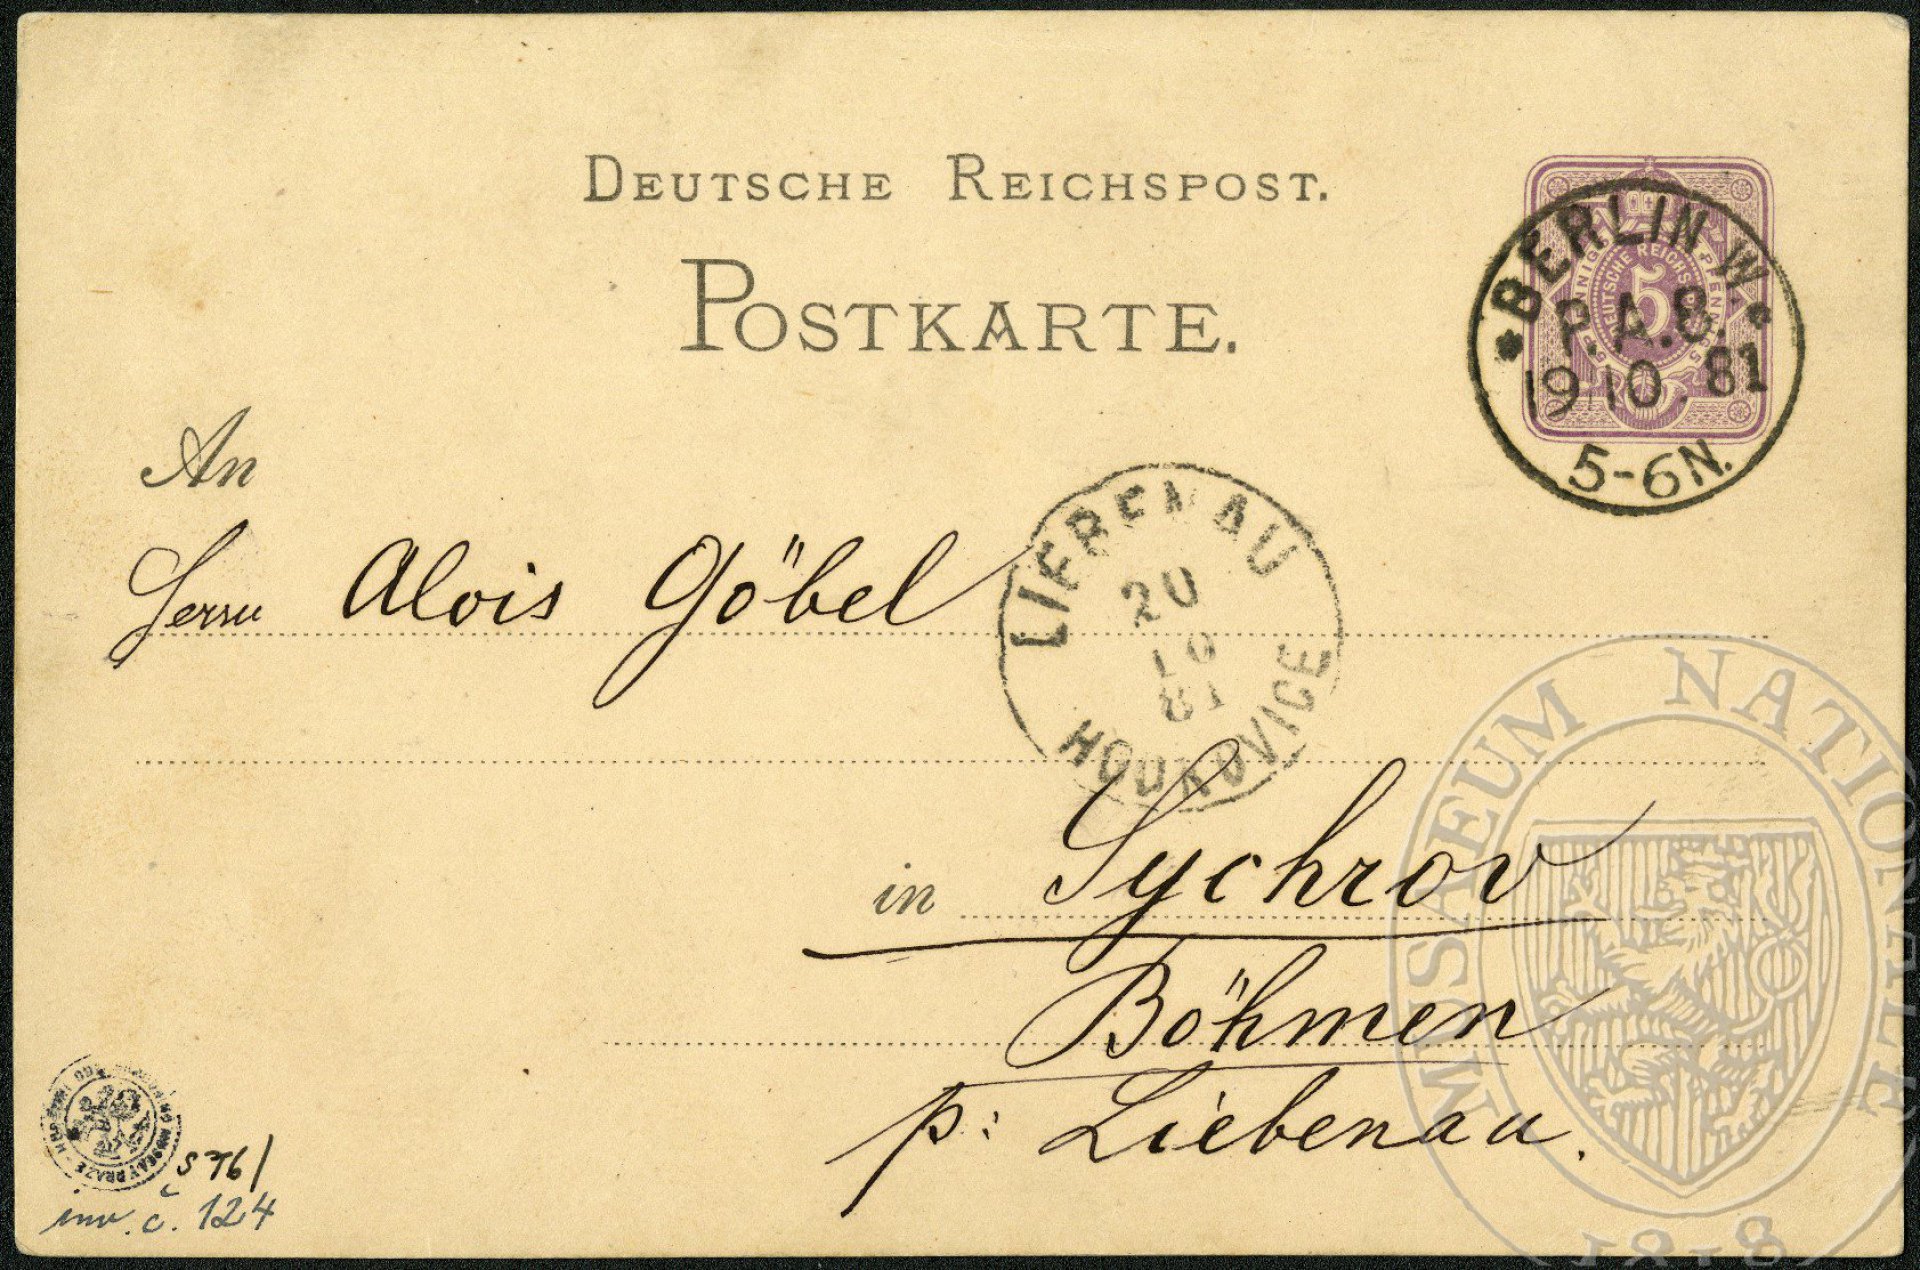 DEUTSCHE REICHSPOST.
POSTKARTE.
BERLIN W.
P.A.8.
19 10. 81
5-6N.
5
DEUTSCHE REICHSPOST
An
Herrn Alois Göbel
LIEBENAU
20
10
81
HODKOVICE
in Sychrov
Böhmen
p: Liebenau.
S 76/
inv. č. 124
MUSAEUM NATIONALE
1818